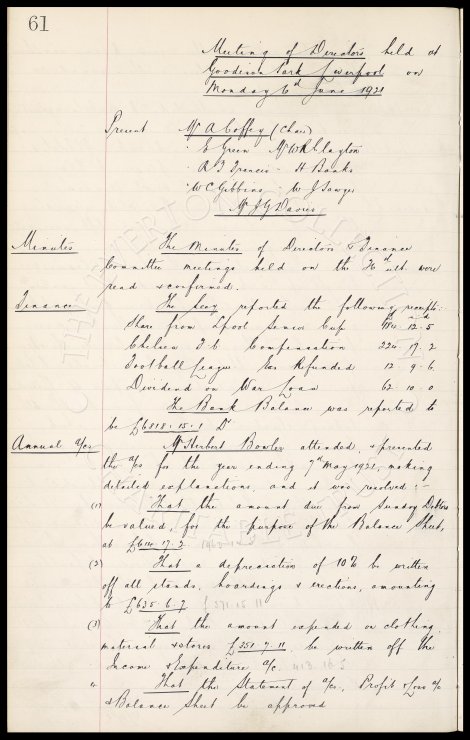 61
Meeting of Directors held at
Goodison Park Liverpool on
Monday 6th June 1921
Present Mr A Coffey (Chair)
" E Green Mr W R Clayton
" A T Francis " H Banks
" W C Gibbins " W J Sawyer
Mr J G Davies
Minutes The Minutes of Directors & Finance
Committee meetings held on the ult. were
read & confirmed.
Finance The Secy reported the following receipts:
Share from L'pool Senior Cup 12 . 5
Chelsea F C Compensation 224 . 17 . 2
Football League Refunded 12 . 9 . 6
Dividend on War Loan 62 . 10 . 0
The Bank Balance was reported to
be £6818 . 15 . 1 Dr
Annual a/cs Mr Herbert Bowler attended, & presented
the a/cs for the year ending 7th May 1921, making
detailed explanations, and it was resolved :-
(1) That the amount due from Sundry Debtors
be valued, for the purpose of the Balance Sheet,
at £614 . 17 . 2
(2) That a depreciation of 10% be written
off all stands, hoardings & erections, amounting
to £635 . 6 . 7 £571.15.11
(3) That the amount expended on clothing,
material & stores £351 . 7 . 11, be written off the
Income & Expenditure a/c. 413.16.5
" That the Statement of a/cs, Profit & Loss a/c
& Balance Sheet be approved